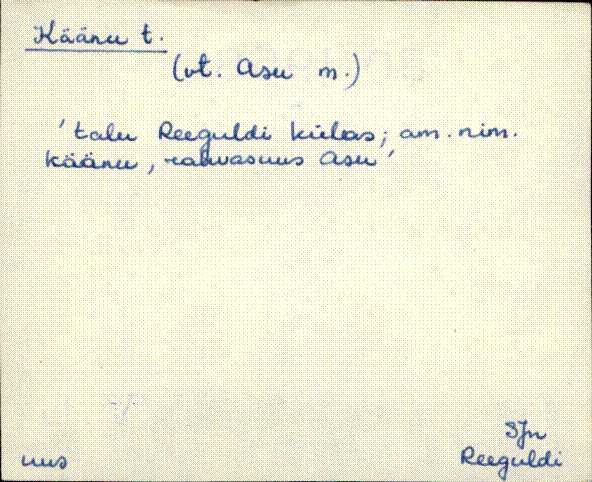 Käänu t.
(vt. Asu m.)
'talu Reeguldi külas; am. nim.
käänu, rahvasuus Asu'
SJn
uus Reeguldi